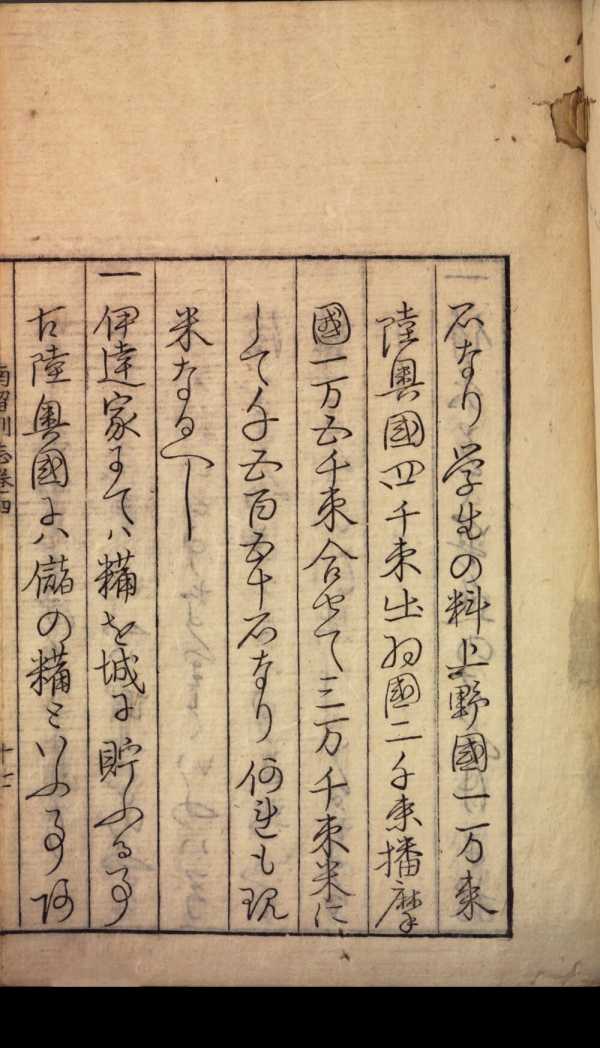 石なり学生の料上野國一万束
陸奥國四千束出羽國二千束播摩
國一万五千束合せて三万千束米に
して千五百五十石なり何れも現
米なるへし
一伊達家にてハ糒を城に貯ふる事
古陸奥國にハ儲の糒といふ事阿